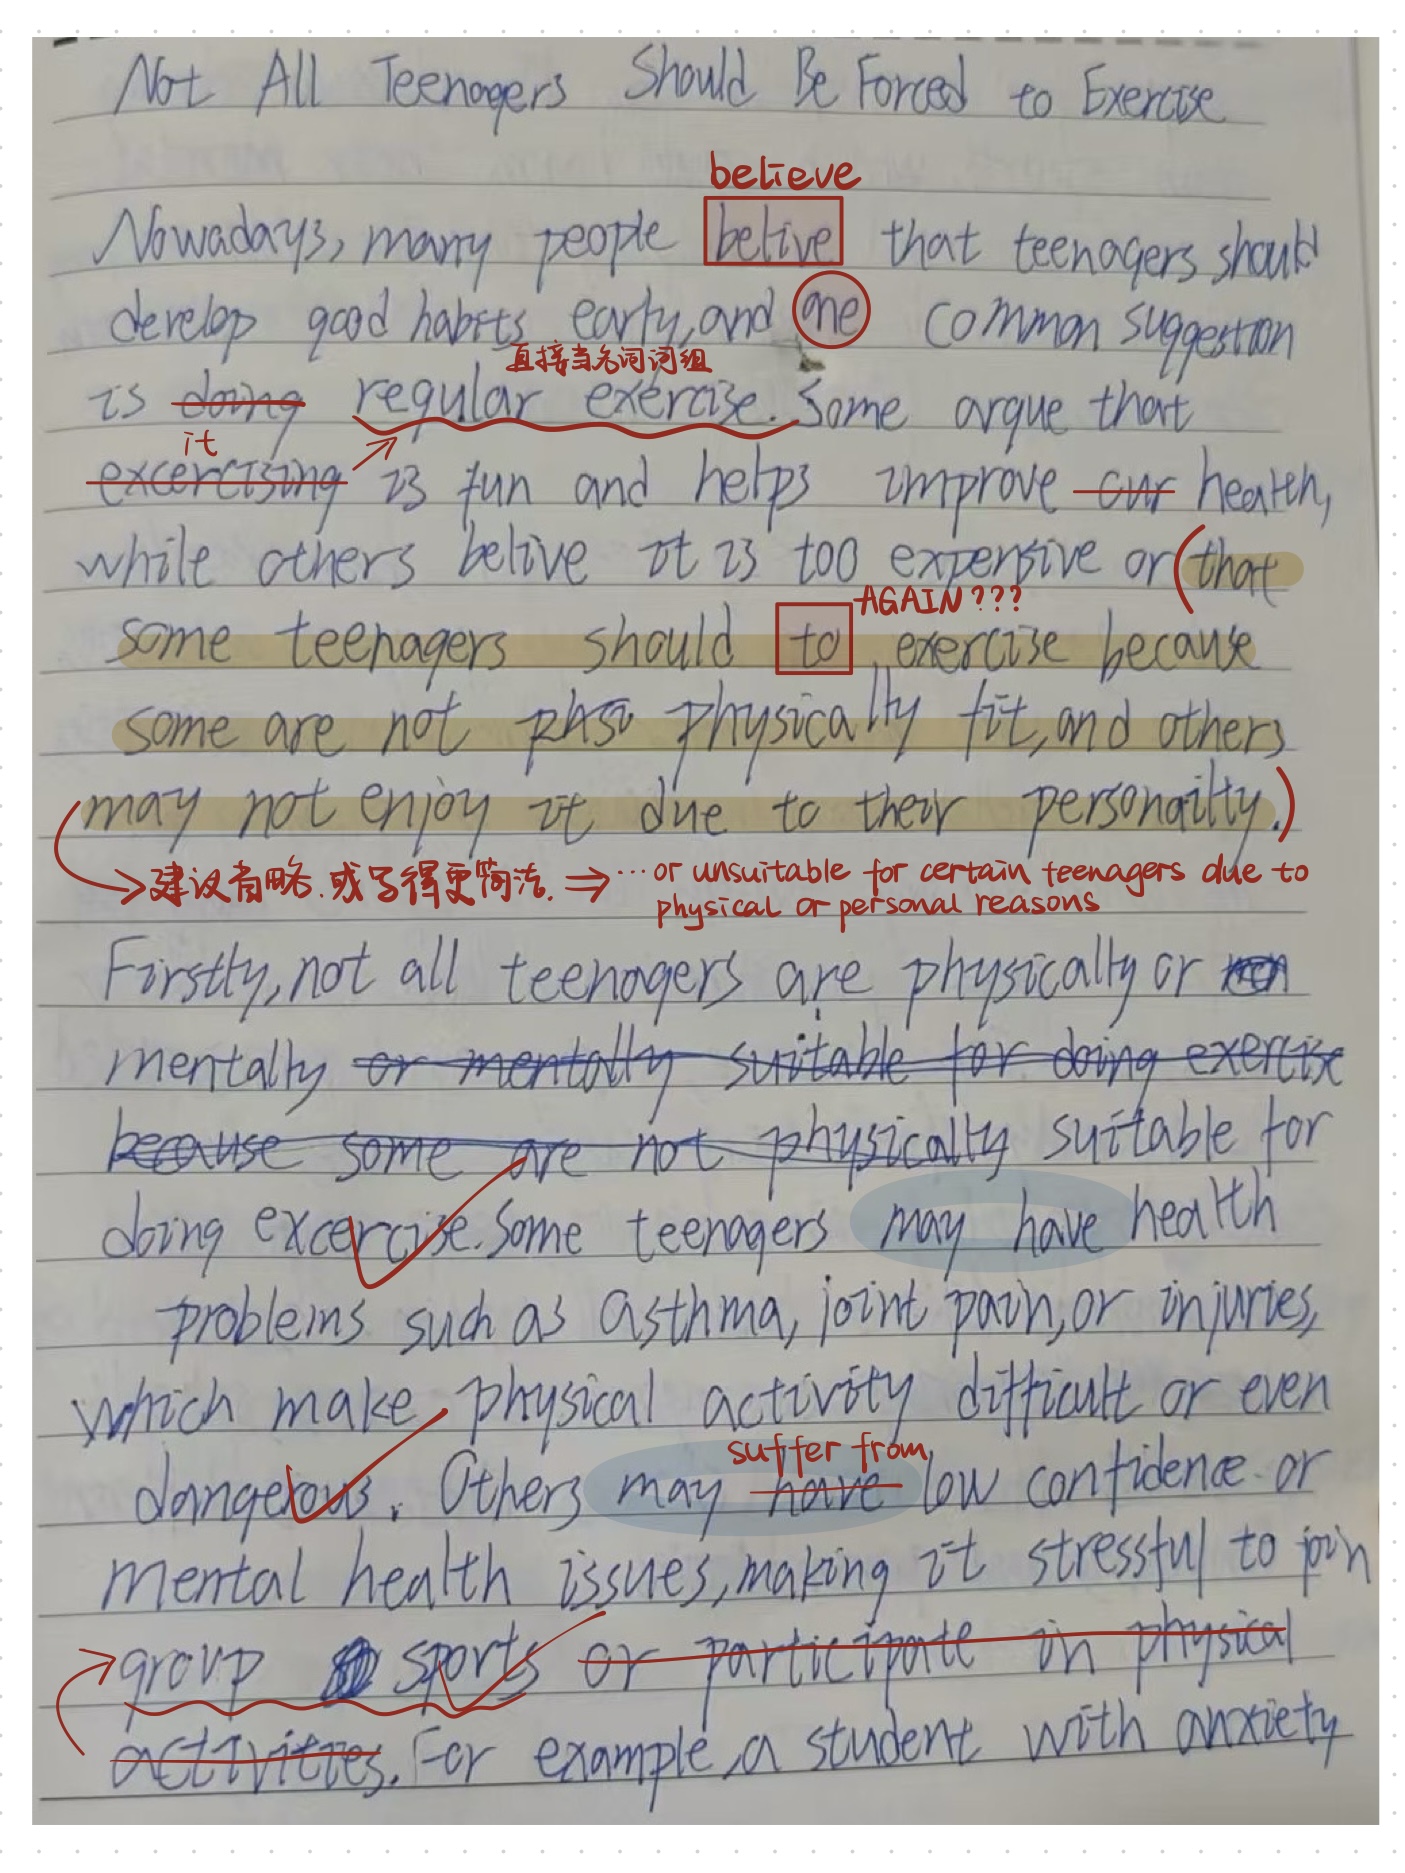 Not All Teenagers Should Be Forced to Exercise
believe
Nowadays, many people belive that teenagers should
develop good habits early, and one common suggestion
直接当名词词组
is doing regular exercise. Some argue that
it
excercising is fun and helps improve our health,
while others belive it is too expensive or (that
AGAIN???
some teenagers should to exercise because
some are not phsi physically fit, and others
may not enjoy it due to their personailty.)
建议省略.或写得更简洁. ⇒ … or unsuitable for certain teenagers due to
physical or personal reasons
Firstly, not all teenagers are physically or
mentally or mentally suitable for doing exercise
because some are not physically suitable for
doing excercise. Some teenagers may have health
problems such as asthma, joint pain, or injuries,
which make physical activity difficult or even
suffer from
dangerous. Others may have low confidence or
mental health issues, making it stressful to join
group sports or participate in physical
activities. For example, a student with anxiety